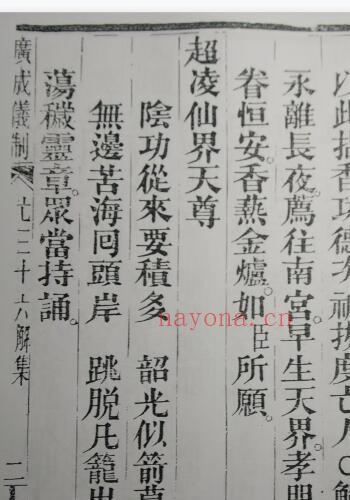 以此拈香功德次祈拔度亡人○解
永離長夜。薦往南宮。早生天界。孝
眷恒安。香爇金爐。如臣所願。
超凌仙界天尊
陰功從來要積多 韶光似箭
無邊苦海囘頭岸 跳脫凡籠出
蕩穢靈章。眾當持誦。
廣成儀制 三十六解集 二
nayona.cn